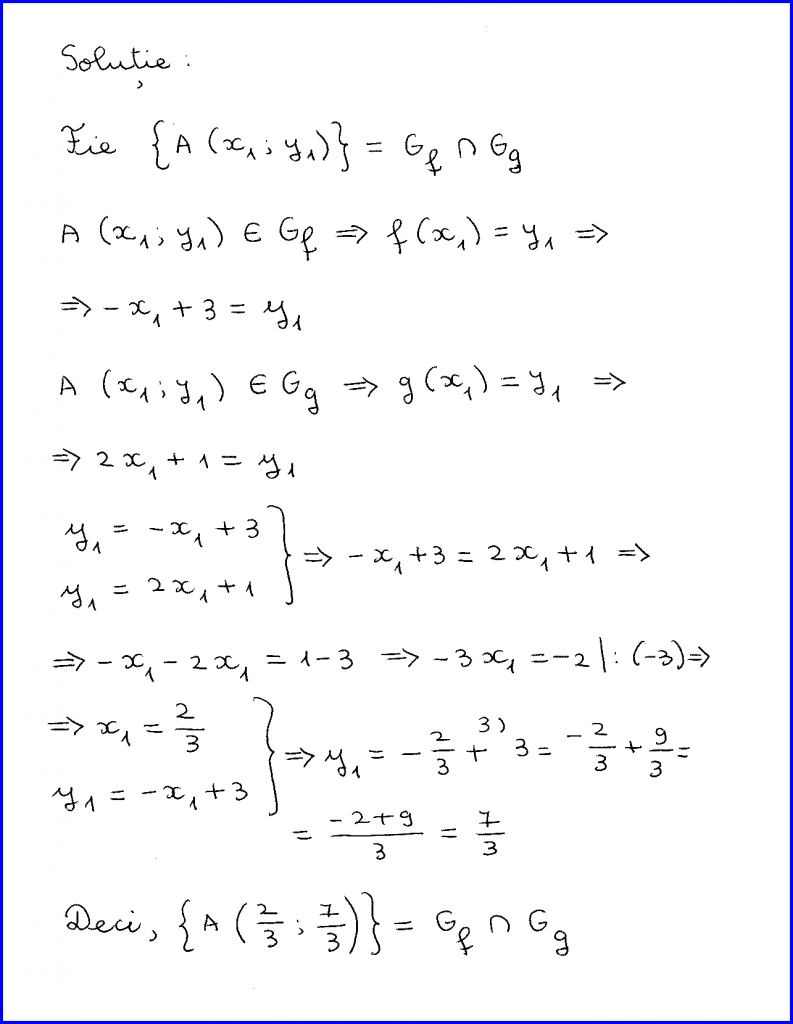 Soluție :
Fie {A (x₁; y₁)} = G_f ∩ G_g
A (x₁; y₁) ∈ G_f ⇒ f(x₁) = y₁ ⇒
⇒ -x₁ + 3 = y₁
A (x₁; y₁) ∈ G_g ⇒ g(x₁) = y₁ ⇒
⇒ 2x₁ + 1 = y₁
y₁ = -x₁ + 3
y₁ = 2x₁ + 1 } ⇒ -x₁ + 3 = 2x₁ + 1 ⇒
⇒ -x₁ - 2x₁ = 1 - 3 ⇒ -3x₁ = -2 |: (-3) ⇒
⇒ x₁ = 2/3
y₁ = -x₁ + 3 } ⇒ y₁ = -2/3 + ³⁾3 = -2/3 + 9/3 =
= (-2+9)/3 = 7/3
Deci, {A (2/3; 7/3)} = G_f ∩ G_g